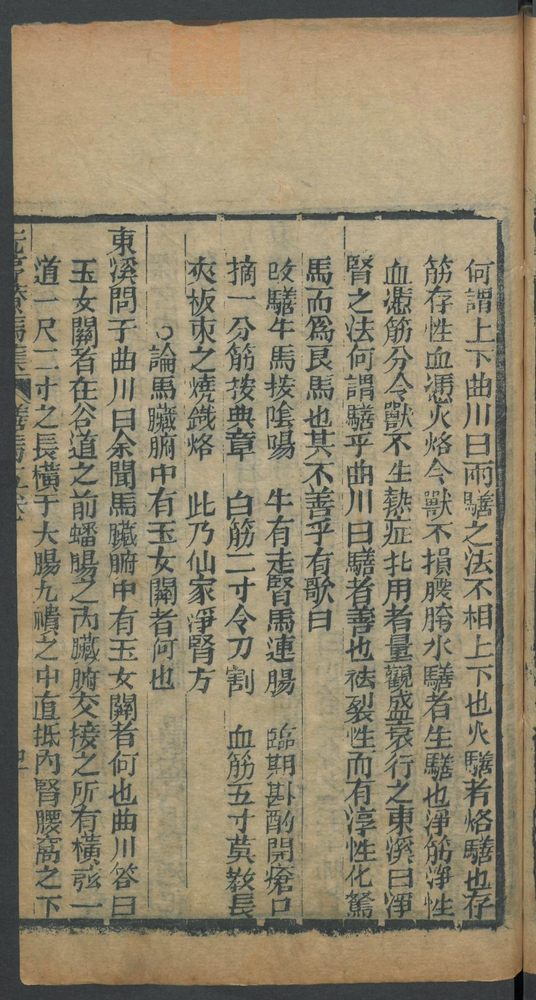 何謂上下曲川曰兩騸之法不相上下也火騸者烙騸也存
筋存性血憑火烙令獸不損腰胯水騸者生騸也淨筋淨性
血憑筋分令獸不生熱症扎用者量觀盛衰行之東溪曰凈
腎之法何謂騸乎曲川曰騸者善也袪裂性而有淳性化駑
馬而爲良馬也其不善乎有歌曰
改騸牛馬按陰陽　牛有走腎馬連腸　臨期斟酌開瘡口
摘一分筋按典章　白筋二寸令刀割　血筋五寸莫教長
夾板束之燒鐵烙　此乃仙家淨腎方
○論馬臟腑中有玉女關者何也
東溪問于曲川曰余聞馬臟腑中有玉女關者何也曲川答曰
玉女關者在谷道之前蟠腸之內臟腑交接之所有橫弦一
道一尺二寸之長橫于大腸九䙡之中直抵內腎腰窩之下
元亨療馬集